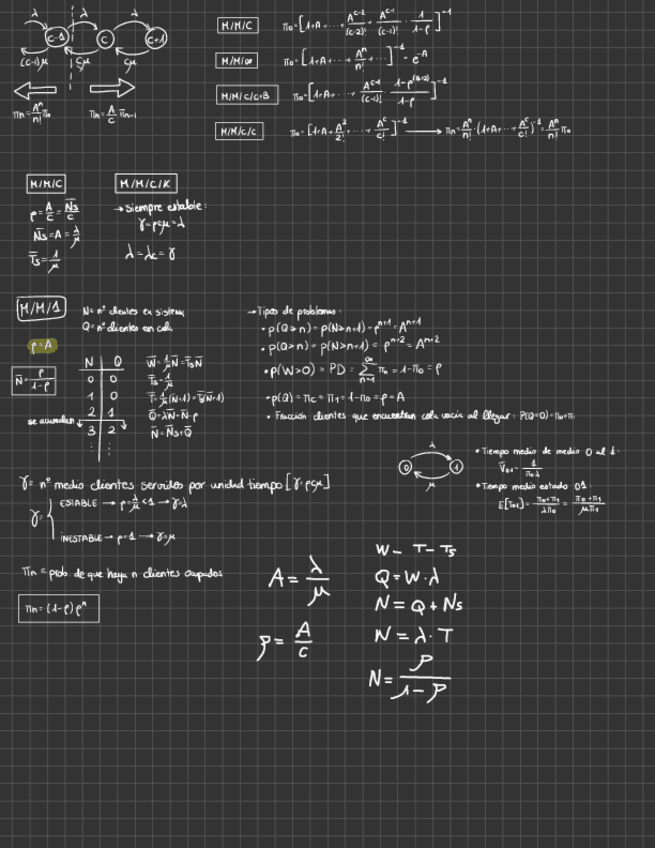 λ λ λ
c-1 c c+1
(c-1)μ cμ cμ
πn = Aⁿ/n! π₀ πn = A/c πn-1
M/M/C π₀ = [1+A+···+ A^(c-2)/(c-2)! + A^(c-1)/(c-1)! · 1/(1-ρ)]⁻¹
M/M/∞ π₀ = [1+A+···+ Aⁿ/n! + ···]⁻¹ = e^-A
M/M/C/C+B
M/M/C/C π₀ = [1+A+ A²/2! + ···+ A^c/c!]⁻¹ → πn = Aⁿ/n! · (1+A+···+ A^c/c!)⁻¹ = Aⁿ/n! π₀
M/M/C
ρ = A/c = N̄s/c
N̄s = A = λ/μ
T̄s = 1/μ
M/M/C/K
→ Siempre estable:
γ = ρcμ = λ
λ = λc = γ
M/M/1
ρ = A
N̄ = ρ/(1-ρ)
N = nº clientes en sistema
Q = nº clientes en cola
N Q
0 0
1 0
2 1
3 2
⋮ ⋮
se acumulan
W̄ = 1/μ N̄ = T̄s N̄
T̄s = 1/μ
T̄ = 1/μ (N̄+1) = T̄s(N̄+1)
Q̄ = λW̄ = N̄-ρ
N̄ = N̄s+Q̄
→ Tipos de problemas:
• p(Q≥n) = p(N≥n+1) = ρ^(n+1) = A^(n+1)
• p(Q>n) = p(N>n+1) = ρ^(n+2) = A^(n+2)
• p(W>0) = PD = ∑ₙ₌₁^∞ πn = 1-π₀ = ρ
• p(Q) = πc = π₁ = 1-π₀ = ρ = A
• Fracción clientes que encuentran cola vacía al llegar: P(Q=0) = π₀+π₁
λ
0 1
μ
• Tiempo medio de medio 0 al 1:
V̄₀₁ = 1/(π₀λ)
• Tiempo medio estado 01
E[T₀₁] = (π₀+π₁)/(λπ₀) = (π₀+π₁)/(μπ₁)
γ = nº medio clientes servidos por unidad tiempo [γ = ρcμ]
γ =
ESTABLE → ρ = λ/μ < 1 → γ = λ
INESTABLE → ρ = 1 → γ = μ
πn = prob. de que haya n clientes ocupados
πn = (1-ρ)ρⁿ
A = λ/μ
ρ = A/c
W = T - Ts
Q = W · λ
N = Q + Ns
N = λ · T
N = ρ/(1-ρ)